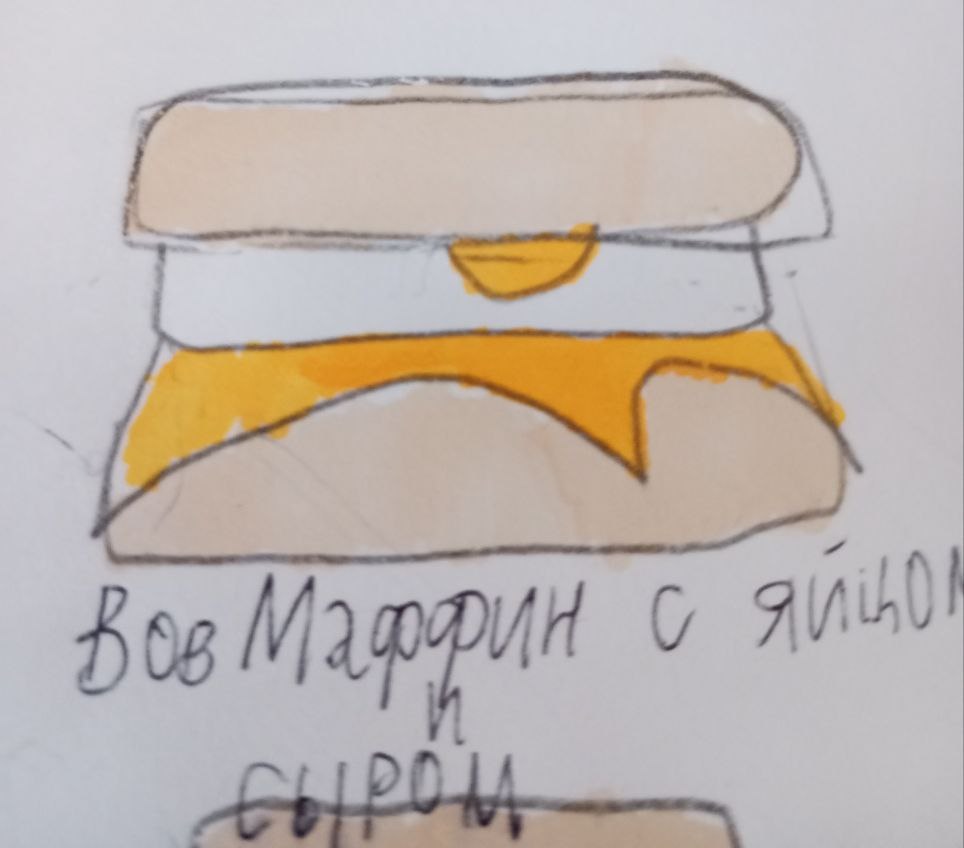 ВовМаффин с яйцом
и
сыром